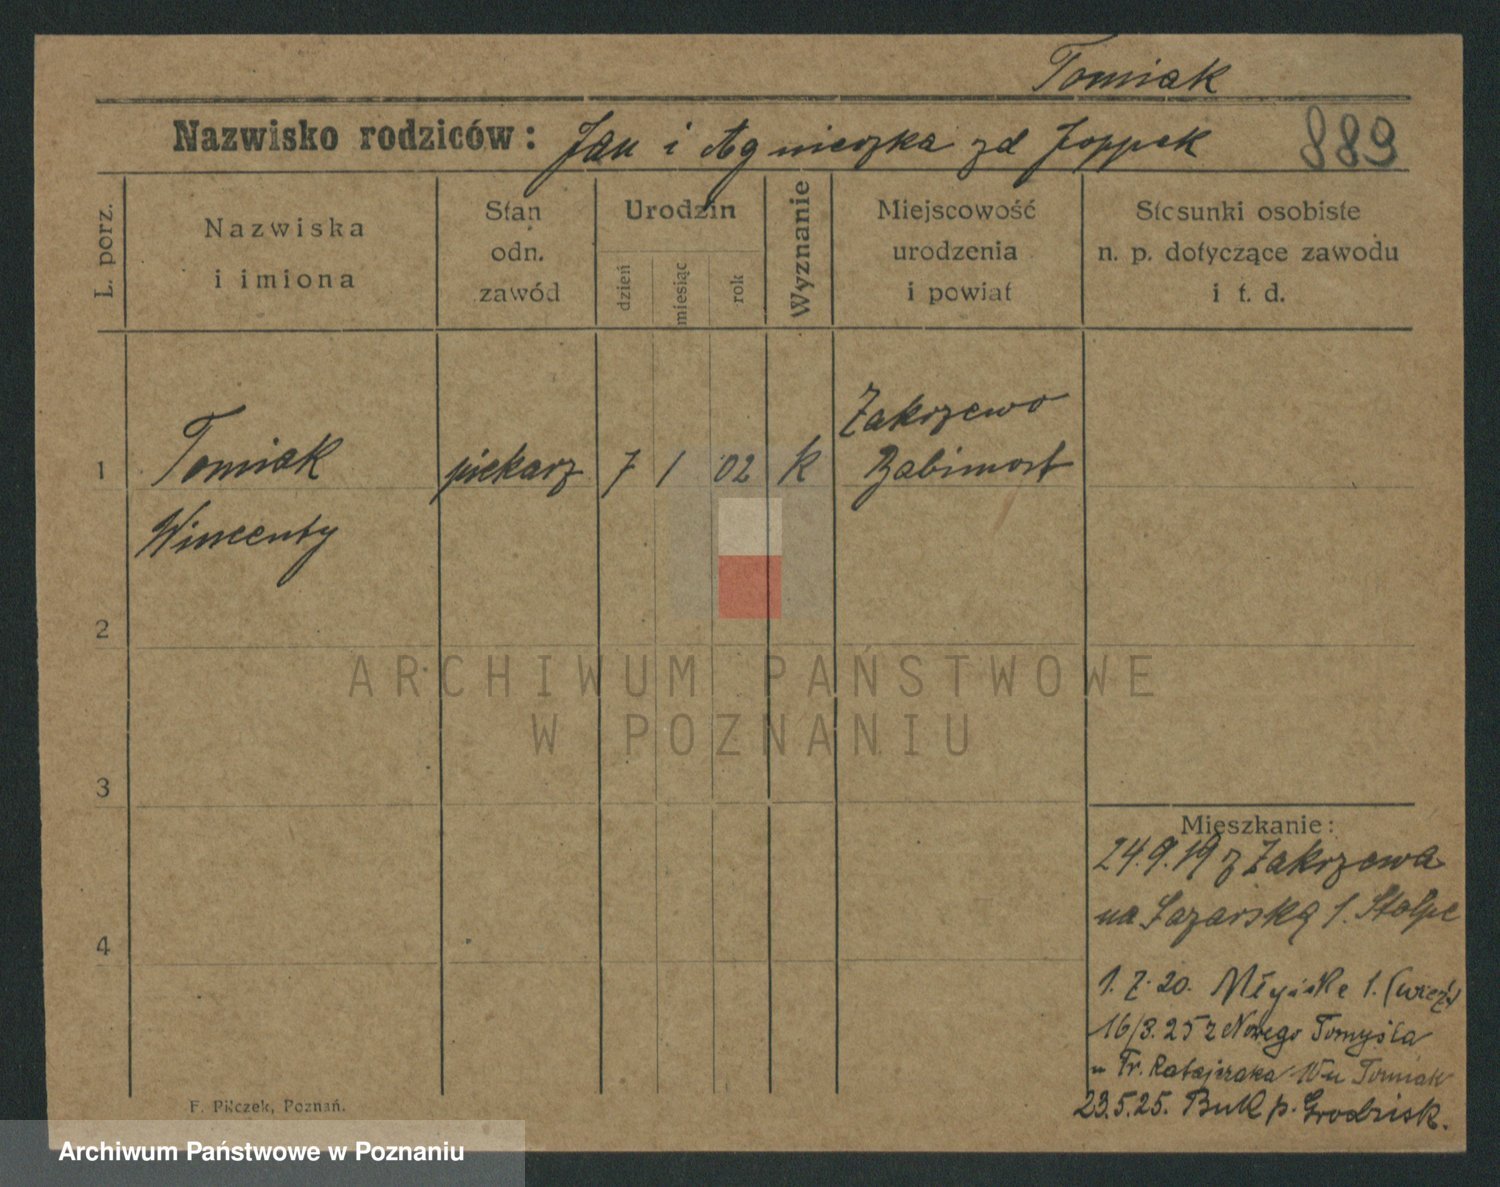 Tomiak
Nazwisko rodziców: Jan i Agnieszka zd Joppek 889
L. porz.
Nazwiska
i imiona
Stan
odn.
zawód
Urodzin
dzień
miesiąc
rok
Wyznanie
Miejscowość
urodzenia
i powiat
Stosunki osobiste
n. p. dotyczące zawodu
i t. d.
1 Tomiak piekarz 7 1 02 k Zakrzewo
Babimost
Wincenty
2
3
4
ARCHIWUM PAŃSTWOWE
W POZNANIU
Mieszkanie:
24.9.19 z Zakrzewa
na Łazarską 1. Stolpe
1. 7. 20. 1.
16/3.25 z Nowego Tomyśla
Fr. Ratajczaka 10 u Tomiak
23.5.25. Buk p. Grodzisk.
F. Pilczek, Poznań.
Archiwum Państwowe w Poznaniu